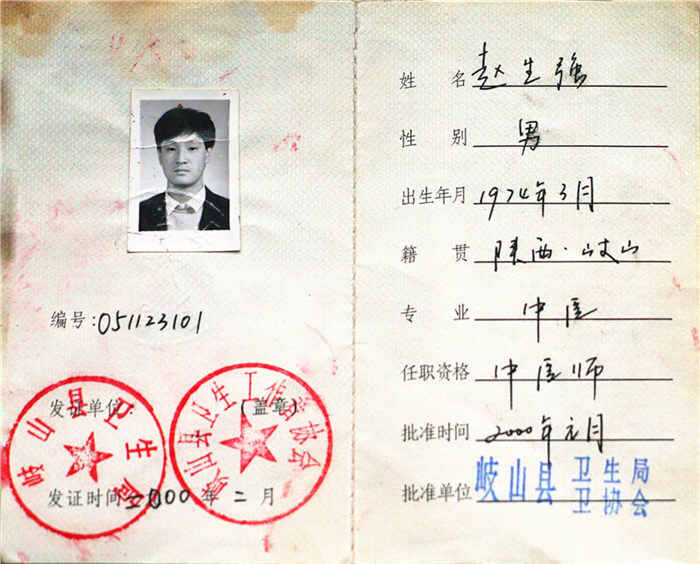 编号:051123101
发证单位: (盖章)
岐山县卫生局
岐山县卫生工作者协会
发证时间 2000 年 二 月
姓 名 赵生强
性 别 男
出生年月 1974年3月
籍 贯 陕西·岐山
专 业 中医
任职资格 中医师
批准时间 2000年元月
批准单位 岐山县 卫生局
卫协会